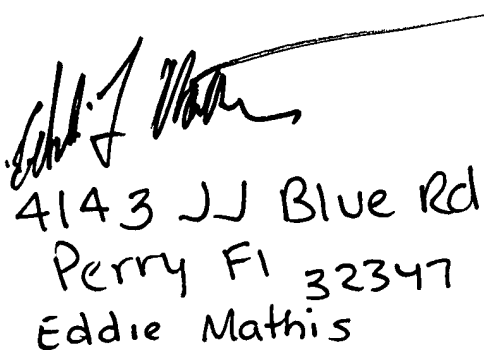 Eddie J Mathis
4143 JJ Blue Rd
Perry Fl 32347
Eddie Mathis